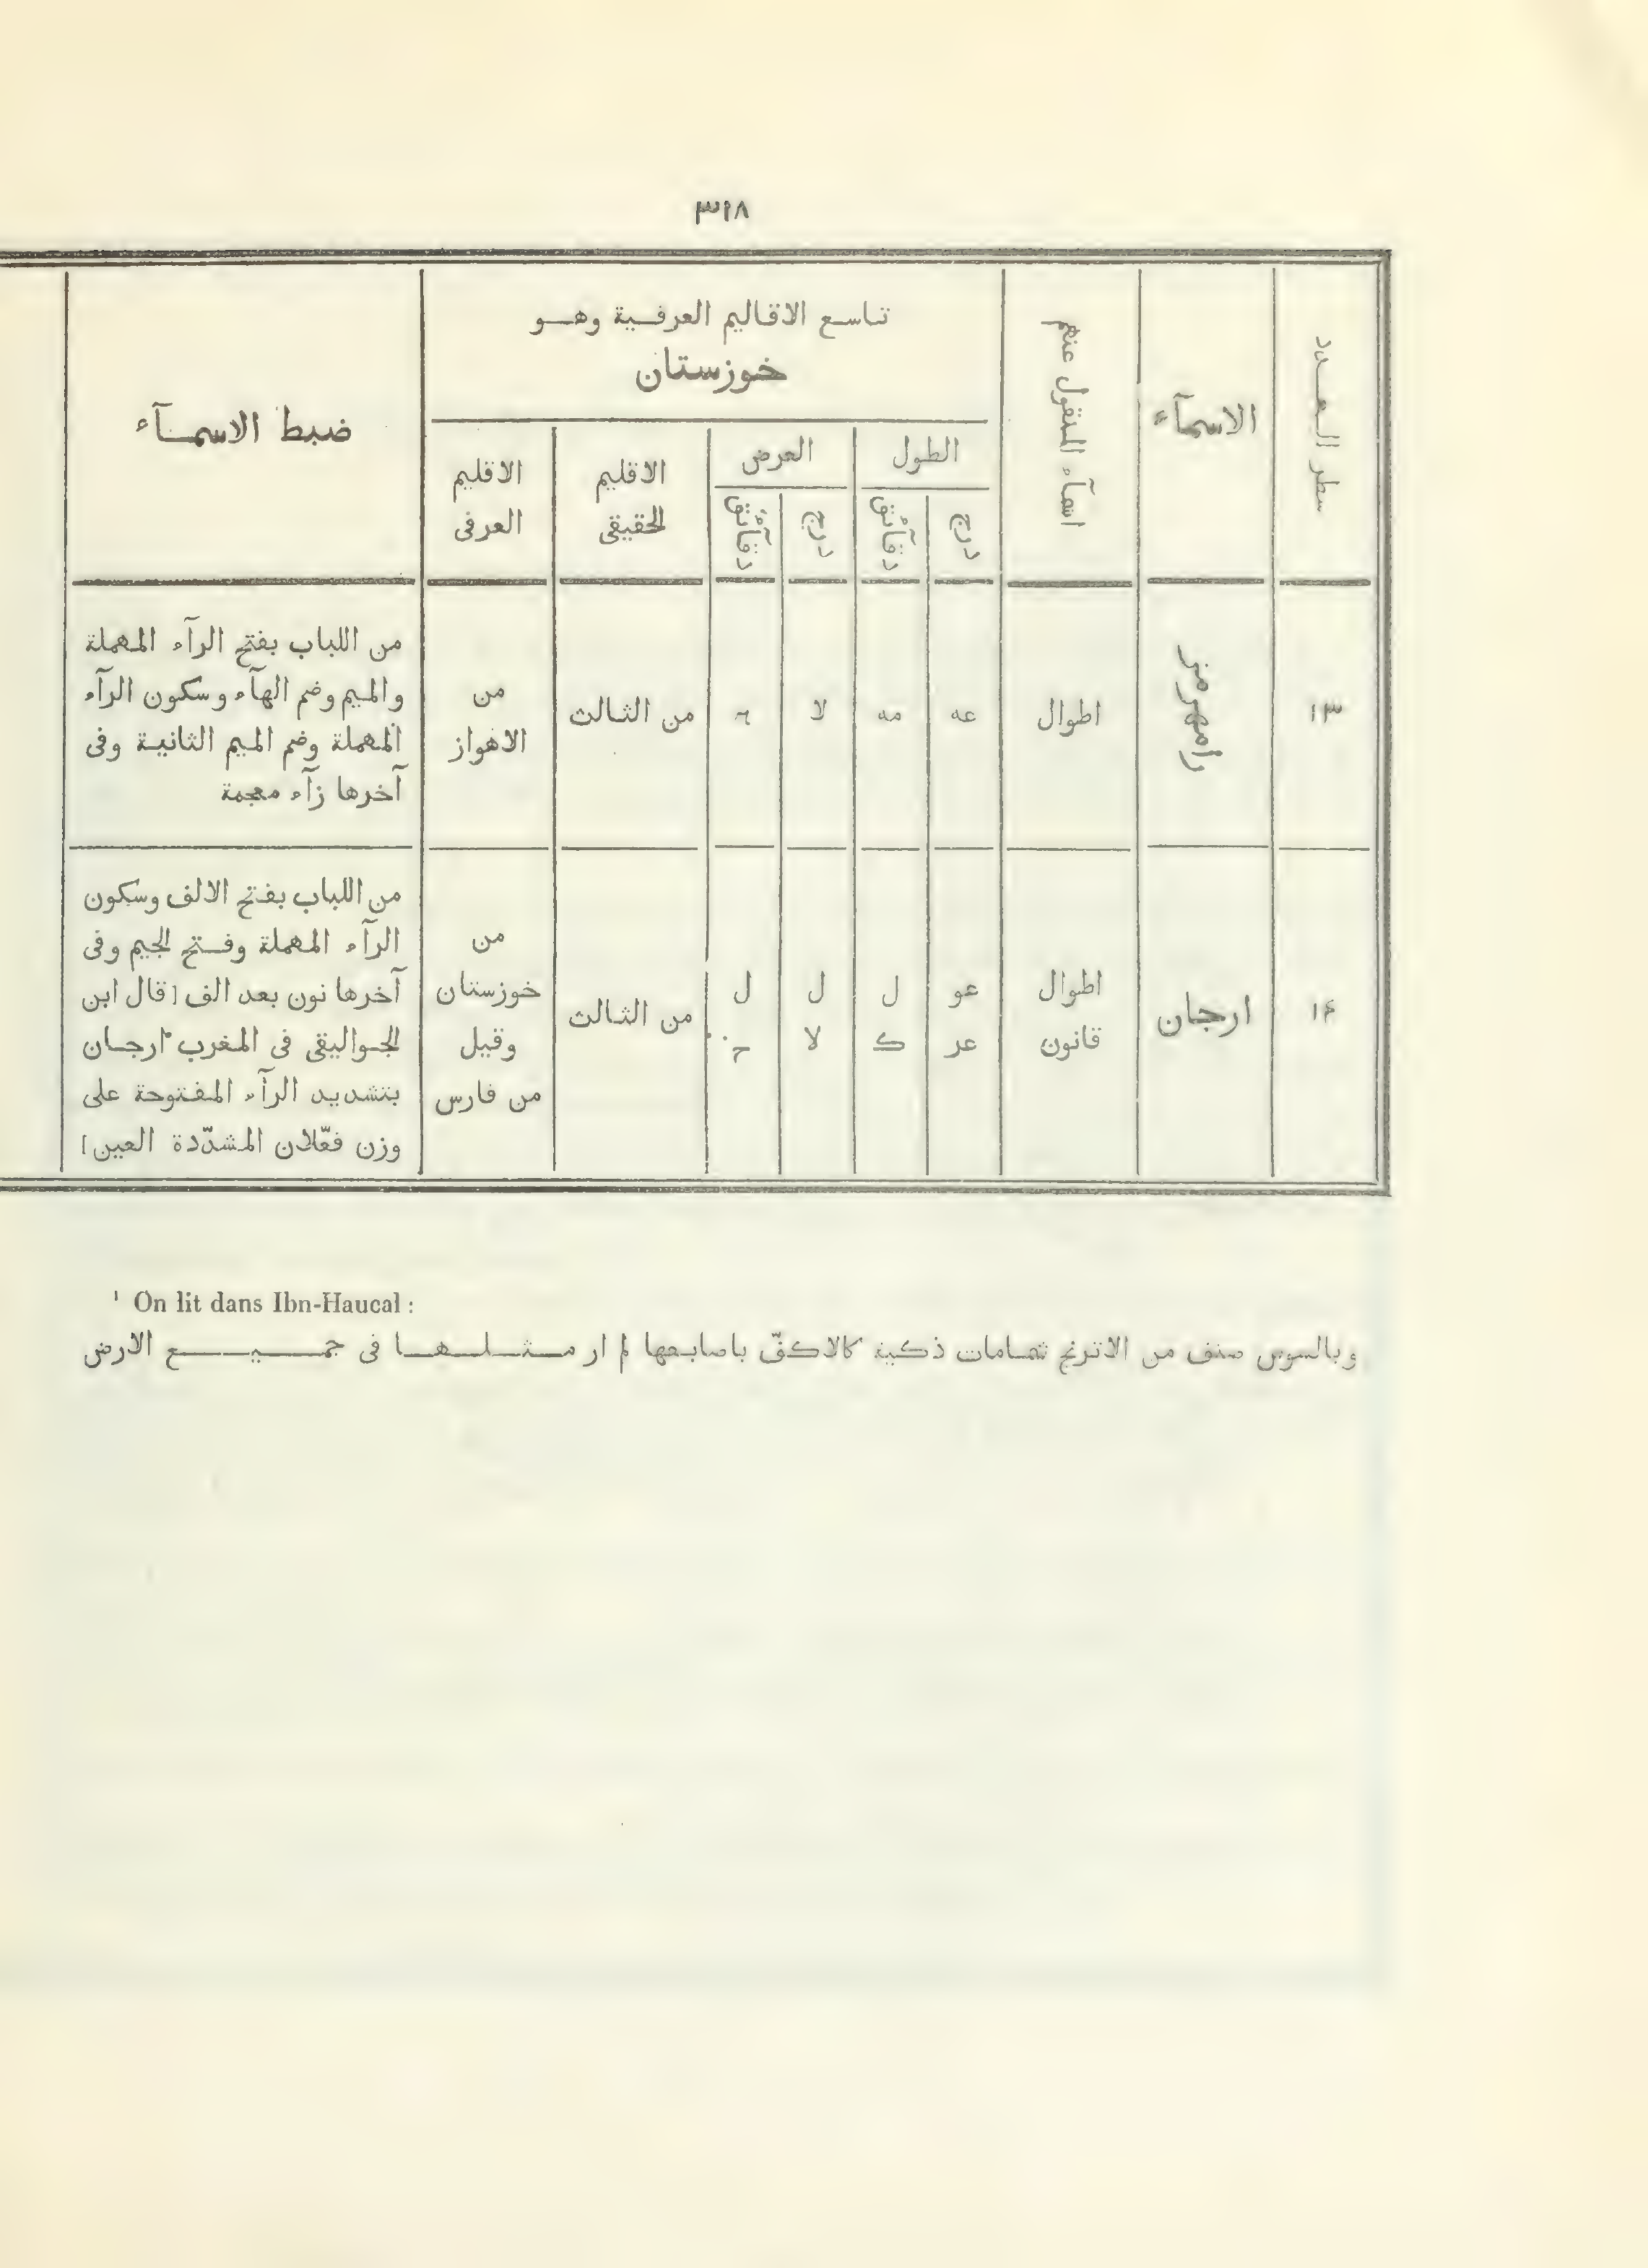 ٣١٨
سطر العدد
الاسمآء
اسمآء المنقول عنهم
تاسع الاقاليم العرفية وهو
خوزستان
الطول
العرض
درج
دقآئق
درج
دقآئق
الاقليم
الحقيقى
الاقليم
العرفى
ضبط الاسمآء
١٣
رامهرمز
اطوال
عه
مه
لا
من الثالث
من
الاهواز
من اللباب بفتح الرآء المهملة
والميم وضم الهآء وسكون الرآء
المهملة وضم الميم الثانية وفى
آخرها زآء معجمة
١۴
ارجان
اطوال
قانون
عو
عر
ل
ك
ل
لا
ل
من الثالث
من
خوزستان
وقيل
من فارس
من اللباب بفتح الالف وسكون
الرآء المهملة وفتح الجيم وفى
آخرها نون بعد الف [قال ابن
الجواليقى فى المغرب ارجان
بتشديد الرآء المفتوحة على
وزن فعّلان المشدّدة العين]
¹ On lit dans Ibn-Haucal :
وبالسوس صنف من الاترنج ثمامات ذكية كالاكفّ باصابعها لم ار مثلها فى جميع الارض